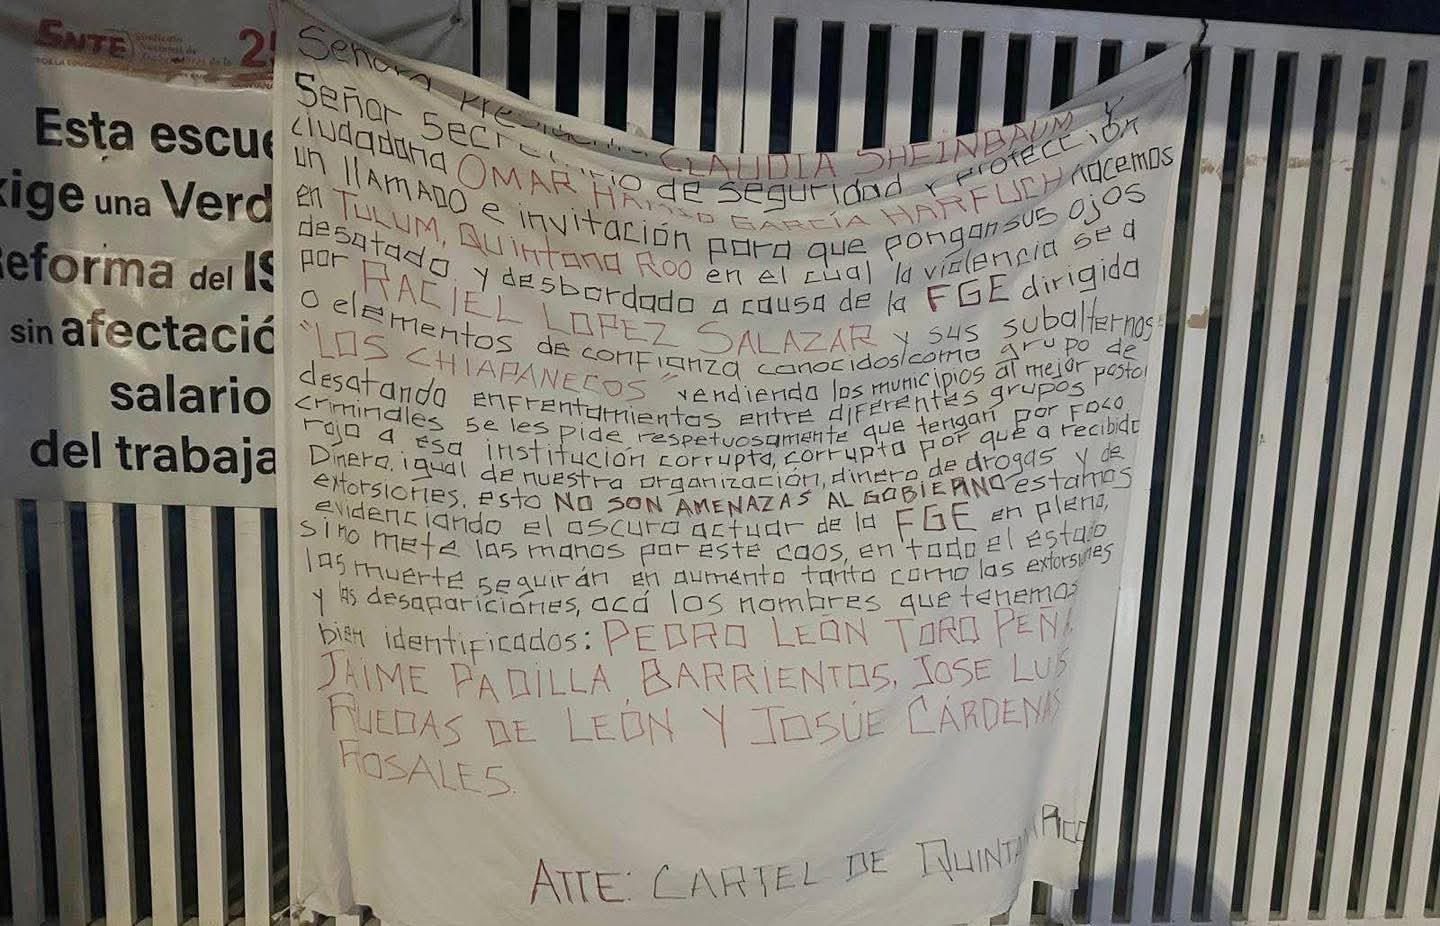 SNTE Sindicato Nacional de Trabajadores de la
Esta escue
xige una Verd
Reforma del IS
sin afectació
salario
del trabaja
Señora Presidenta CLAUDIA SHEINBAUM Y
Señor secretario de seguridad y Protección
ciudadana OMAR HAMID GARCÍA HARFUCH hacemos
un llAMADO e invitación para que pongan sus ojos
en TULUM, Quintana Roo en el cual la violencia se a
desatado y desbordado a causa de la FGE dirigida
por RACIEL LOPEZ SALAZAR y sus subalternos
o elementos de confianza conocidos como grupo de
"LOS CHIAPANECOS" vendiendo los municipios al mejor postor
desatando enfrentamientos entre diferentes grupos
criminales se les pide respetuosamente que tengan por Foco
rojo a esa institución corrupta, corrupto por que a recibido
Dinero, igual de nuestra organización, dinero de drogas y de
extorsiones. esto NO SON AMENAZAS AL GOBIERNO estamos
evidenciando el oscuro actuar de la FGE en pleno,
si no mete las manos por este caos, en todo el estado
las muerte seguirán en aumento tanto como las extorsiones
y las desapariciones, acá los nombres que tenemos
bien identificados: PEDRO LEÓN TORO PEÑA
JAIME PADILLA BARRIENTOS, JOSE LUIS
RUEDAS DE LEÓN Y JOSÚE CÁRDENAS
ROSALES.
ATTE: CARTEL DE QUINTANA ROO